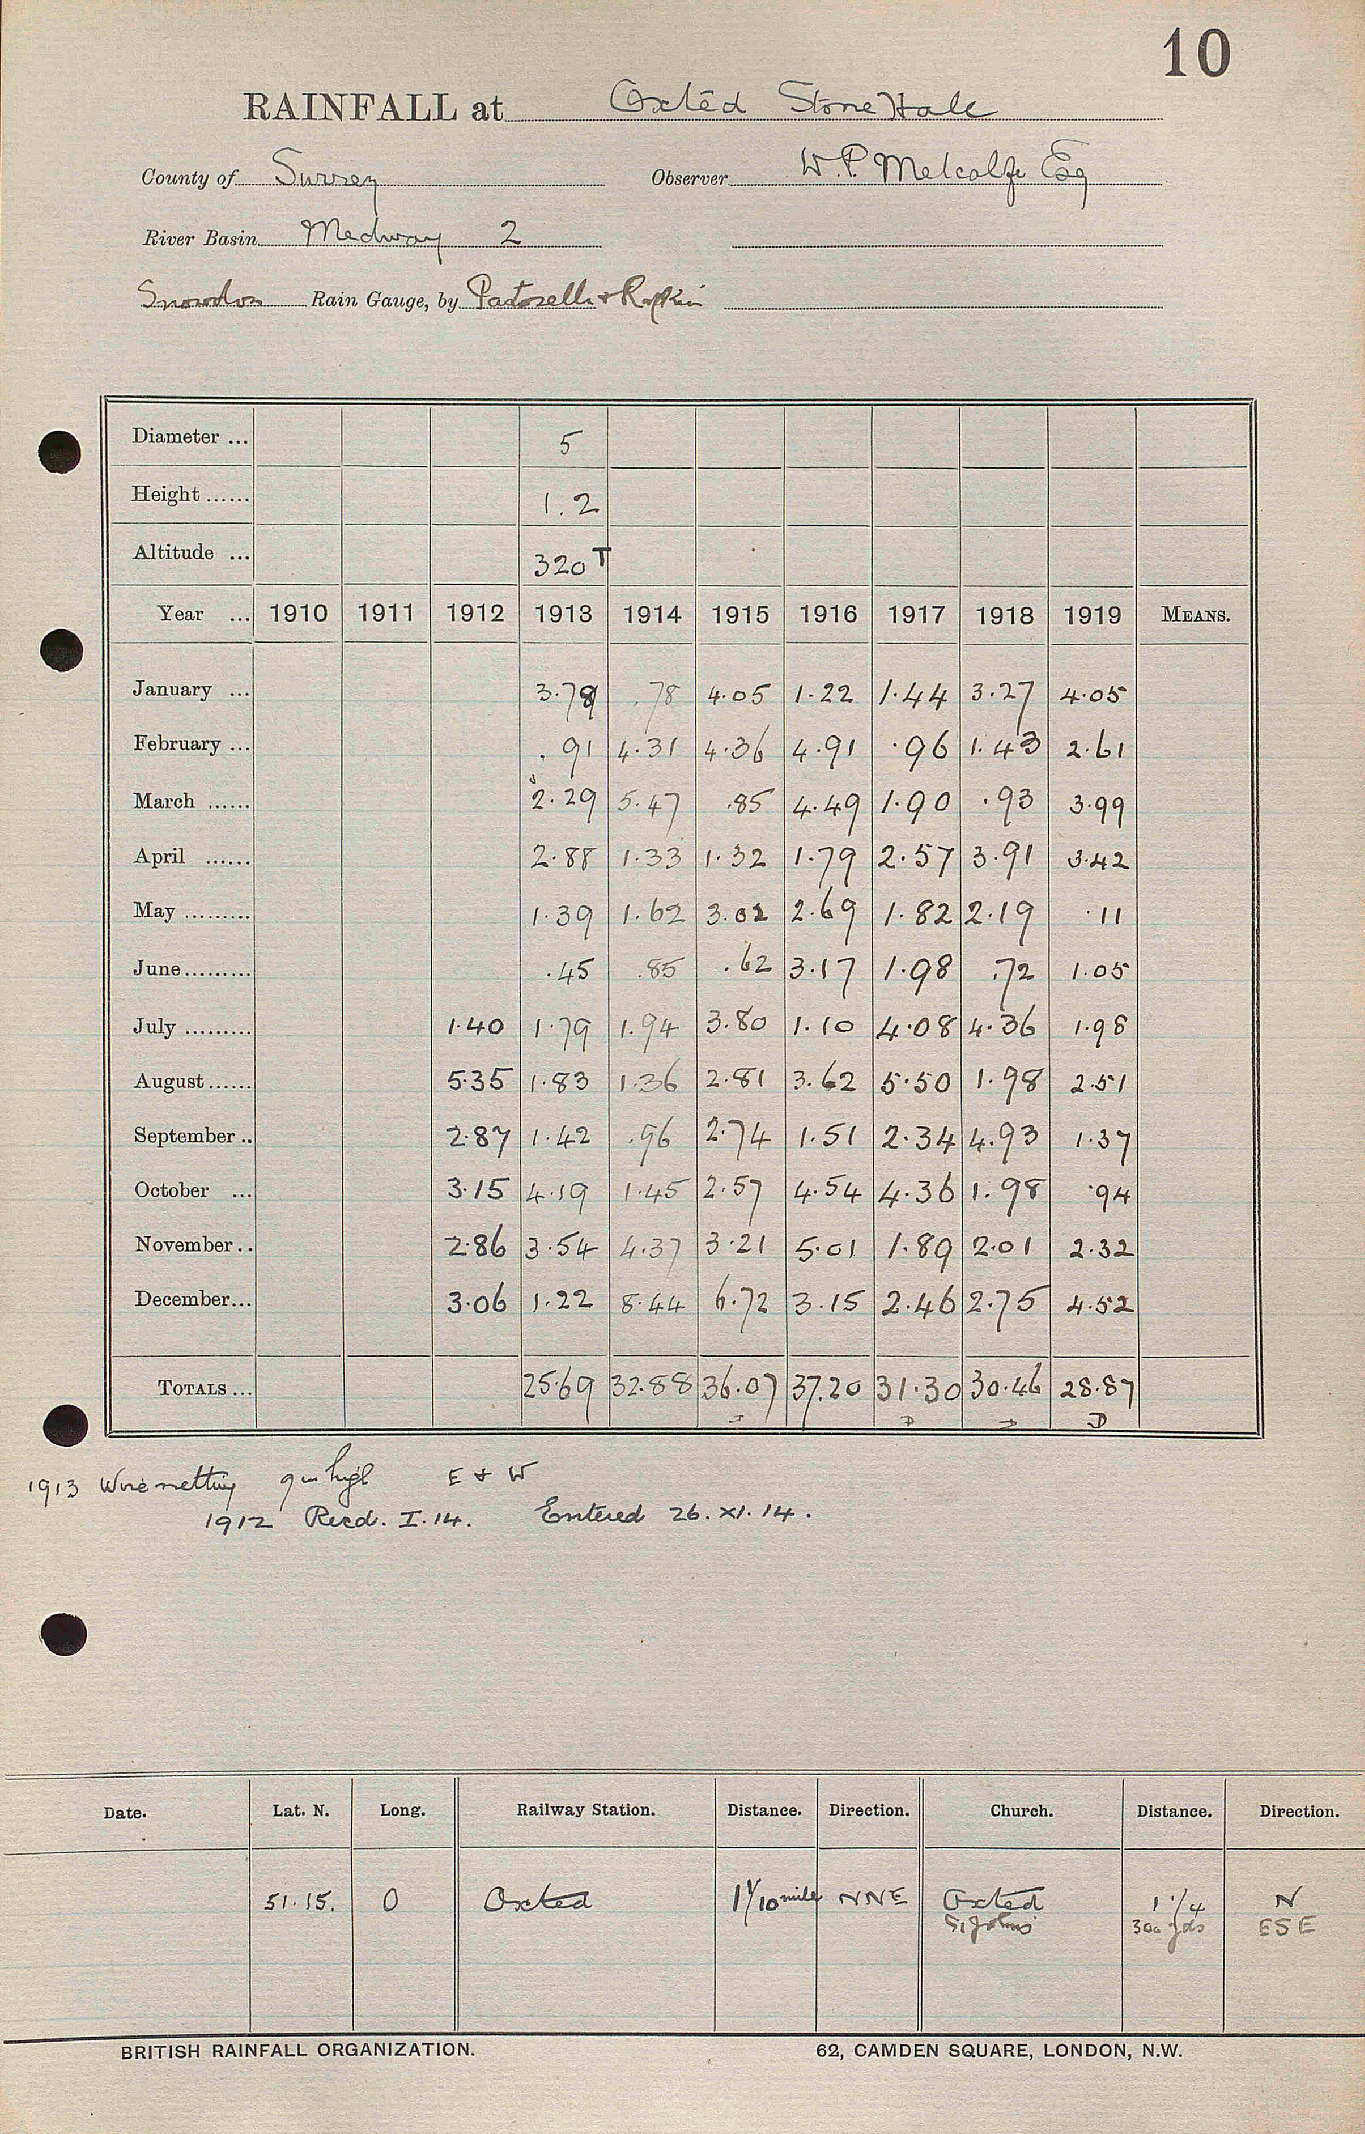 10
RAINFALL at Oxted Stone Hall
County of Surrey Observer W. P. Metcalfe Esq
River Basin Medway 2
Snowdon Rain Gauge, by Pastorelli & Rapkin
Diameter ... 5
Height ...... 1.2
Altitude ... 320 T
Year ... 1910 1911 1912 1913 1914 1915 1916 1917 1918 1919 MEANS.
January ... 3.78 .78 4.05 1.22 1.44 3.27 4.05
February ... .91 4.31 4.36 4.91 .96 1.43 2.61
March ...... 2.29 5.47 .85 4.49 1.90 .93 3.99
April ...... 2.88 1.33 1.32 1.79 2.57 3.91 3.42
May ......... 1.39 1.62 3.02 2.69 1.82 2.19 .11
June ......... .45 .85 .62 3.17 1.98 .72 1.05
July ......... 1.40 1.79 1.94 3.80 1.10 4.08 4.36 1.98
August ...... 5.35 1.83 1.36 2.81 3.62 5.50 1.98 2.51
September .. 2.87 1.42 .96 2.74 1.51 2.34 4.93 1.37
October ... 3.15 4.19 1.45 2.57 4.54 4.36 1.98 .94
November .. 2.86 3.54 4.37 3.21 5.01 1.89 2.01 2.32
December... 3.06 1.22 8.44 6.72 3.15 2.46 2.75 4.52
TOTALS ... 25.69 32.88 36.07 37.20 31.30 30.46 28.87
D
1913 Wire netting 9 in high E & W
1912 Recd. I.14. Entered 26.XI.14.
Date. Lat. N. Long. Railway Station. Distance. Direction. Church. Distance. Direction.
51.15. 0 Oxted 1 1/10 mile NNE Oxted 1 1/4 N
St Johns 300 yds ESE
BRITISH RAINFALL ORGANIZATION. 62, CAMDEN SQUARE, LONDON, N.W.